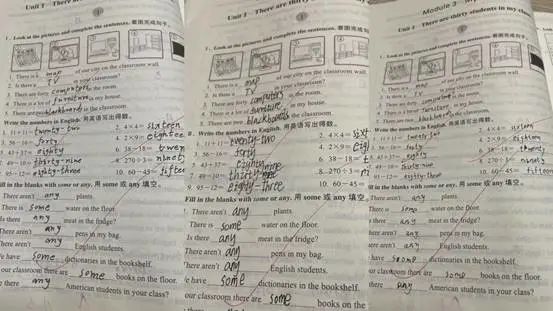 Unit 1 There are
1. Look at the pictures and complete the sentences. 看图完成句子。
1. There is a map of our city on the classroom wall.
2. Is there a TV in your classroom?
3. There are forty computers in the room.
4. There is a lot of furniture in my house.
5. There are two blackboards in the classroom.
Write the numbers in English. 用英语写出得数。
1. 11+11= twenty-two 2. 4×4= sixteen
3. 56-16= forty 4. 2×9= eightee
5. 43+37= eighty 6. 38-18= twen
7. 49-10= thirty-nine 8. 270÷3= ninety
9. 95-12= eighty-three 10. 60-45= fiftee
Fill in the blanks with some or any. 用 some 或 any 填空。
There aren't any plants.
There is some water on the floor.
Is there any meat in the fridge?
There aren't any pens in my bag.
There aren't any English students.
We have some dictionaries in the bookshelf.
our classroom there are some books on the floor.
there any American students in your class?
Unit 1 There are thirty
1. Look at the pictures and complete the sentences. 看图完成句
1. There is a map of our city on the classroom wall.
2. Is there a TV in your classroom?
3. There are forty computers in the room.
4. There is a lot of furniture in my house.
5. There are two blackboards in the classroom.
Write the numbers in English. 用英语写出得数。
1. 11+11= twenty-two 2. 4×4= sixt
3. 56-16= forty 4. 2×9= eig
5. 43+37= eighty 6. 38-18= t
thirty-nine 8. 270÷3=
9. 95-12= eighty-three 10. 60-45=
Fill in the blanks with some or any. 用 some 或 any 填空。
There aren't any plants.
There is some water on the floor.
Is there any meat in the fridge?
There aren't any pens in my bag.
There aren't any English students.
We have some dictionaries in the bookshelf.
our classroom there are some books on the
Module 3
Unit 1 There are thirty students in my cl
1. Look at the pictures and complete the sentences. 看图完成句子。
1. There is a map of our city on the classroom wall.
2. Is there a TV in your classroom?
3. There are forty computers in the room.
4. There is a lot of furniture in my house.
5. There are two blackboards in the classroom.
Write the numbers in English. 用英语写出得数。
1. 11+11= twenty-two 2. 4×4= sixteen
3. 56-16= forty 4. 2×9=
5. 43+37= eighty 6. 38-18= twenty
thirty-nine 8. 270÷3= ninety
9. 95-12= eighty-three 10. 60-45= fifteen
Fill in the blanks with some or any. 用 some 或 any 填空。
There aren't any plants.
There is some water on the floor.
Is there any meat in the fridge?
There aren't any pens in my bag.
there aren't any English students.
We have some dictionaries in the bookshelf.
our classroom there are some books on the floor.
there any American students in your class?